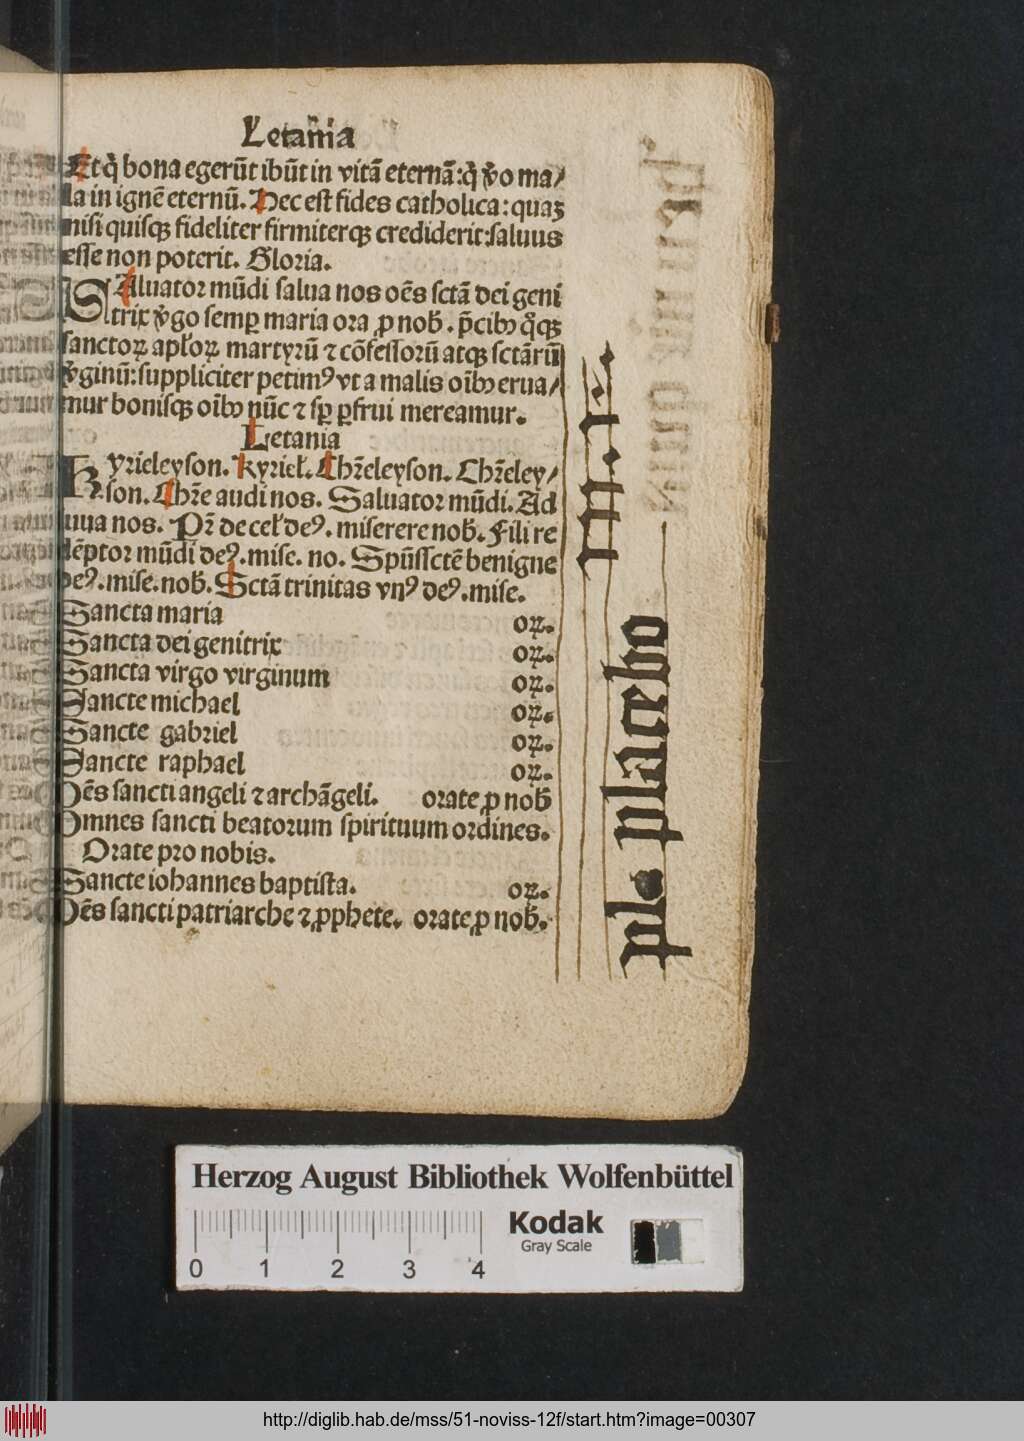 Letania
Et q̄ bona egerūt ibūt in vitā eternā: q̄ v̄o ma/
la in ignē eternū. Hec est fides catholica: quaꝫ
nisi quisqꝫ fideliter firmiterqꝫ crediderit: saluus
esse non poterit. Gloria.
SAluator mūdi salua nos oēs sctā dei geni
trix v̄go semꝑ maria ora ꝓ nob̄. p̄cibꝰ q̄qꝫ
sanctoꝝ apłoꝝ martyrū ⁊ cōfessorū atqꝫ sctārū
v̄ginū: suppliciter petimꝰ vt a malis oībꝰ erua/
mur bonisqꝫ oībꝰ nūc ⁊ sꝑ ꝑfrui mereamur.
Letania
Kyrieleyson. Kyrieł. Chr̄eleyson. Chr̄eley/
son. Chr̄e audi nos. Saluator mūdi. Ad
iuua nos. Pr̄ de cel̄ deꝰ. miserere nob̄. Fili re
dēptor mūdi deꝰ. mise. no. Spūssctē benigne
deꝰ. mise. nob̄. Sctā trinitas vnꝰ deꝰ. mise.
Sancta maria oꝝ.
Sancta dei genitrix oꝝ.
Sancta virgo virginum oꝝ.
Sancte michael oꝝ.
Sancte gabriel oꝝ.
Sancte raphael oꝝ.
Oēs sancti angeli ⁊ archāgeli. orate ꝓ nob̄
Omnes sancti beatorum spirituum ordines.
Orate pro nobis.
Sancte iohannes baptista. oꝝ.
Oēs sancti patriarche ⁊ ꝓphete. orate ꝓ nob̄.
placebo
Herzog August Bibliothek Wolfenbüttel
Kodak
Gray Scale
0 1 2 3 4
http://diglib.hab.de/mss/51-noviss-12f/start.htm?image=00307